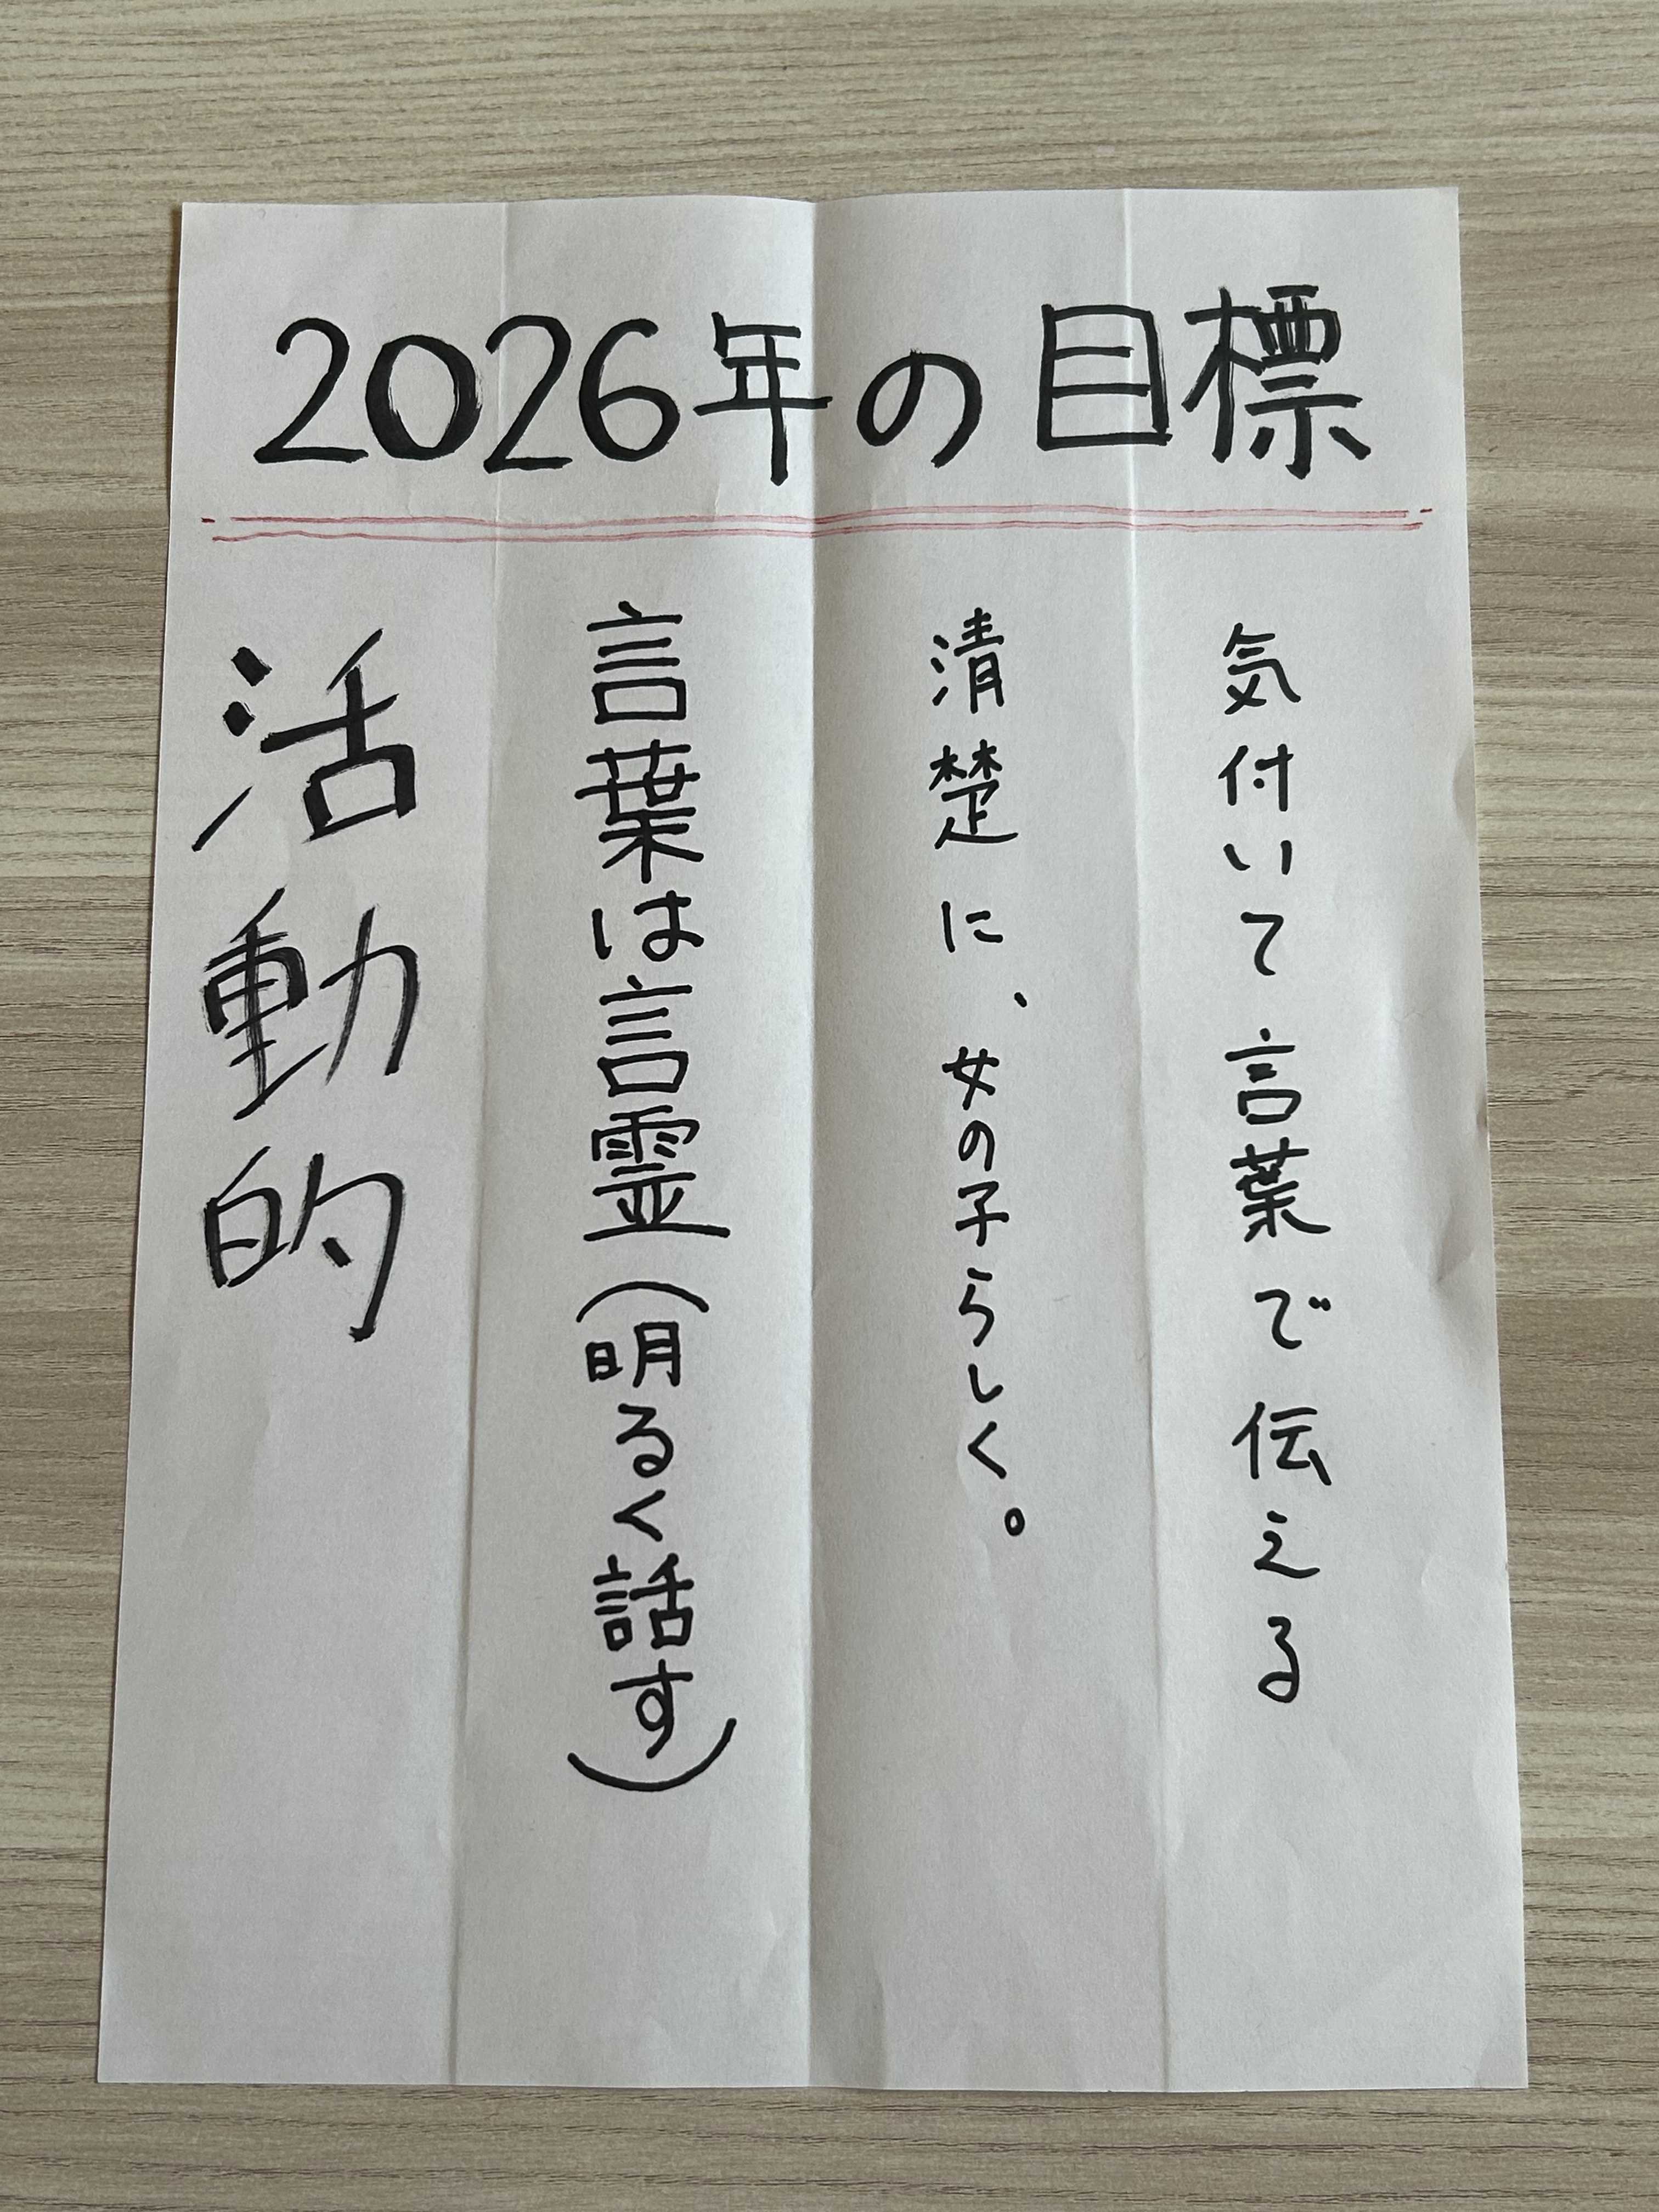 2026年の目標
気付いて言葉で伝える
清楚に、女の子らしく。
言葉は言霊(明るく話す)
活動的